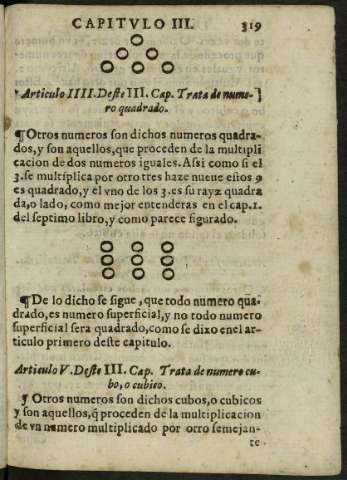 CAPITVLO III. 319
Articulo IIII. Deste III. Cap. Trata de nume-
ro quadrado.
¶Otros numeros son dichos numeros quadra-
dos, y son aquellos, que proceden de la multipli
cacion de dos numeros iguales. Assi como si el
3. se multiplica por otro tres haze nueue estos 9
es quadrado, y el vno de los 3. es su rayz quadra
da, o lado, como mejor entenderas en el cap. 1.
del septimo libro, y como parece figurado.
¶De lo dicho se sigue, que todo numero qua-
drado, es numero superficial, y no todo numero
superficial sera quadrado, como se dixo enel ar-
ticulo primero deste capitulo.
Articulo V. Deste III. Cap. Trata de numero cu-
bo, o cubico.
¶ Otros numeros son dichos cubos, o cubicos
y son aquellos, q̃ proceden de la multiplicacion
de vn numero multiplicado por otro semejan-
te